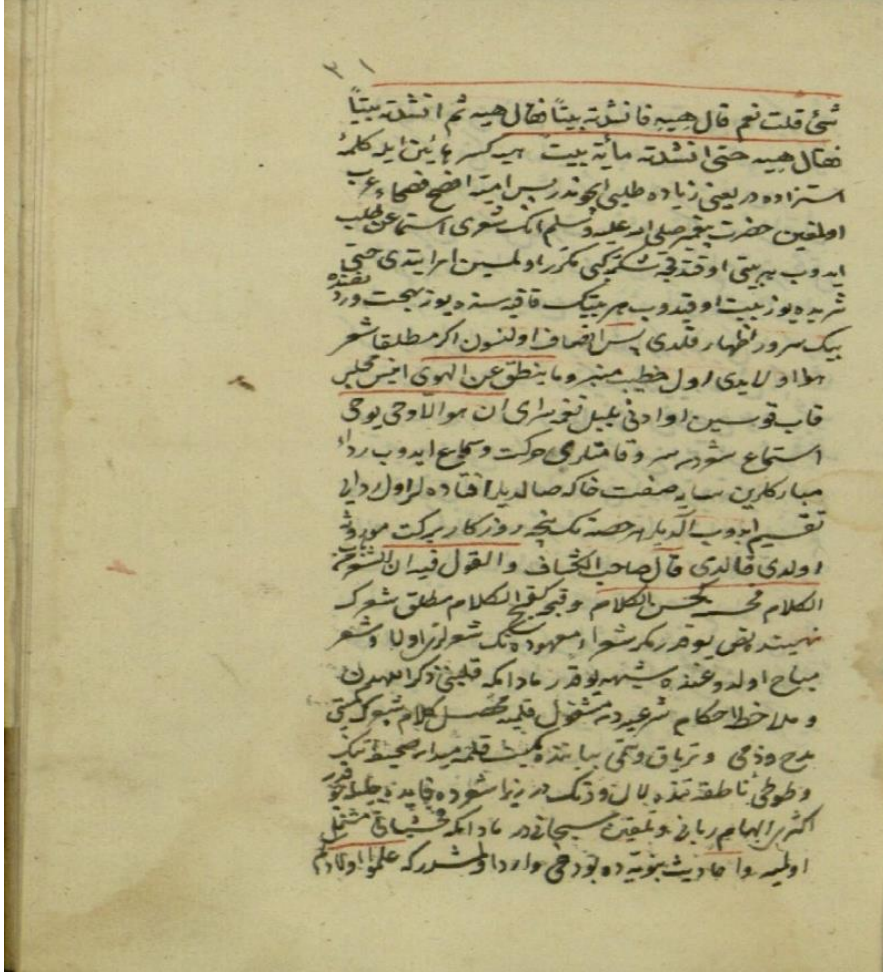 ٣١
شئ قلت نعم قال هيهِ فانشدته بيتاً فقال هيه ثم انشدته بيتاً
فقال هيه حتى انشدته مأية بيت هيه كسر هائين ايله كلمهٔ
استزاده در يعنى زياده طلبى ايچوندر پس اميه افصح فصحاء عرب
اولمغين حضرت پيغمبر صلى الله عليه وسلم انك شعرى استماعن طلب
ايدوب هر بيتى اوقندقجه شكر كبى مكرر اولمسين امر ايتدى حتى
شريده يوز بيت اوقيدوب هر بيتك قافيه سنده يوز بهجت و رديفنده
بيك سرور اظهار قلدى پس انصاف اولنسون اكر مطلقا شعر
هوا اولايدى اول خطيب منبر وما ينطق عن الهوى انيس مجلس
قاب قوسين او ادنى بلبل نغمه سراى ان هو الا وحى يوحى
استماع شودن سرو قامتلرى حركت و سماع ايدوب رداء
مباركلرين سايه صفت خاكه صالديلر افتاده لر اول ردايى
تقسيم ايدوب آلديلر هر حصه نك نيجه روزكار بركت مورو
اولدى قالدى قال صاحب الكشاف والقول فيه ان الشعر باب من
الكلام فحسنه كحسن الكلام وقبحه كقبح الكلام مطلق شعرك
نهينده نص يوقدر مكر شعراء معهوده نك شعرلرى اولا و شعر
مباح اولدوغنده شبهه يوقدر مادامكه قلبنى ذكر اللهدن
و ملاحظهٔ احكام شرعيه دن مشغول قلميه محصل كلام شعرك
مدح و ذمى و ترياق و سمى بياننده كميت قلم ميدان صحيفه ده تيك
و طوطئ ناطقه تنده لال و دنك در زيرا شوده فايده چله
اكثرى الهام ربانى و تلقين سبحانى در مادامكه محسناتى مشتمل
اولميه و احاديث نبويه ده بودخى وارد اولمشدر كه علموا اولادكم